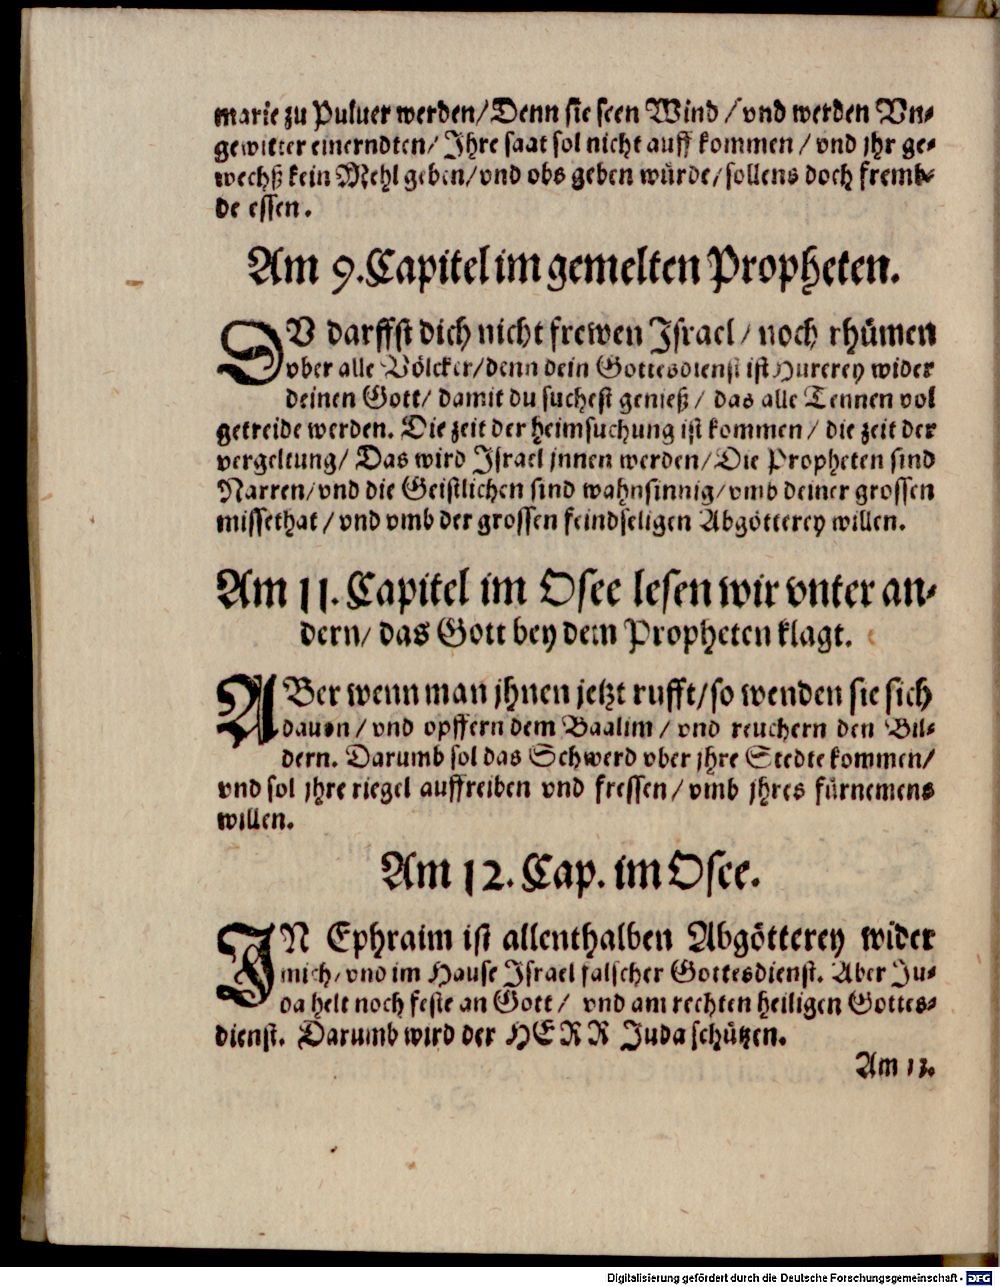 marie zu Puluer werden/Denn sie seen Wind / vnd werden Vn-
gewitter einerndten/ Ihre saat sol nicht auff kommen / vnd jhr ge-
wechß kein Mehl geben/vnd obs geben würde/sollens doch fremb-
de essen.
Am 9. Capitel im gemelten Propheten.
DV darffst dich nicht frewen Israel/ noch rhümen
vber alle Völcker/denn dein Gottesdienst ist Hurerey wider
deinen Gott/ damit du suchest genieß/ das alle Tennen vol
getreide werden. Die zeit der heimsuchung ist kommen/ die zeit der
vergeltung/ Das wird Israel jnnen werden/ Die Propheten sind
Narren/vnd die Geistlichen sind wahnsinnig/vmb deiner grossen
missethat / vnd vmb der grossen feindseligen Abgötterey willen.
Am 11. Capitel im Osee lesen wir vnter an-
dern/ das Gott bey dem Propheten klagt.
ABer wenn man jhnen jetzt rufft/so wenden sie sich
dauon/ vnd opffern dem Baalim / vnd reuchern den Bil-
dern. Darumb sol das Schwerd vber jhre Stedte kommen/
vnd sol jhre riegel auffreiben vnd fressen/ vmb jhres fürnemens
willen.
Am 12. Cap. im Osee.
IN Ephraim ist allenthalben Abgötterey wider
mich/vnd im Hause Israel falscher Gottesdienst. Aber Ju-
da helt noch feste an Gott/ vnd am rechten heiligen Gottes-
dienst. Darumb wird der HERR Juda schützen.
Am 13.
Digitalisierung gefördert durch die Deutsche Forschungsgemeinschaft - DFG